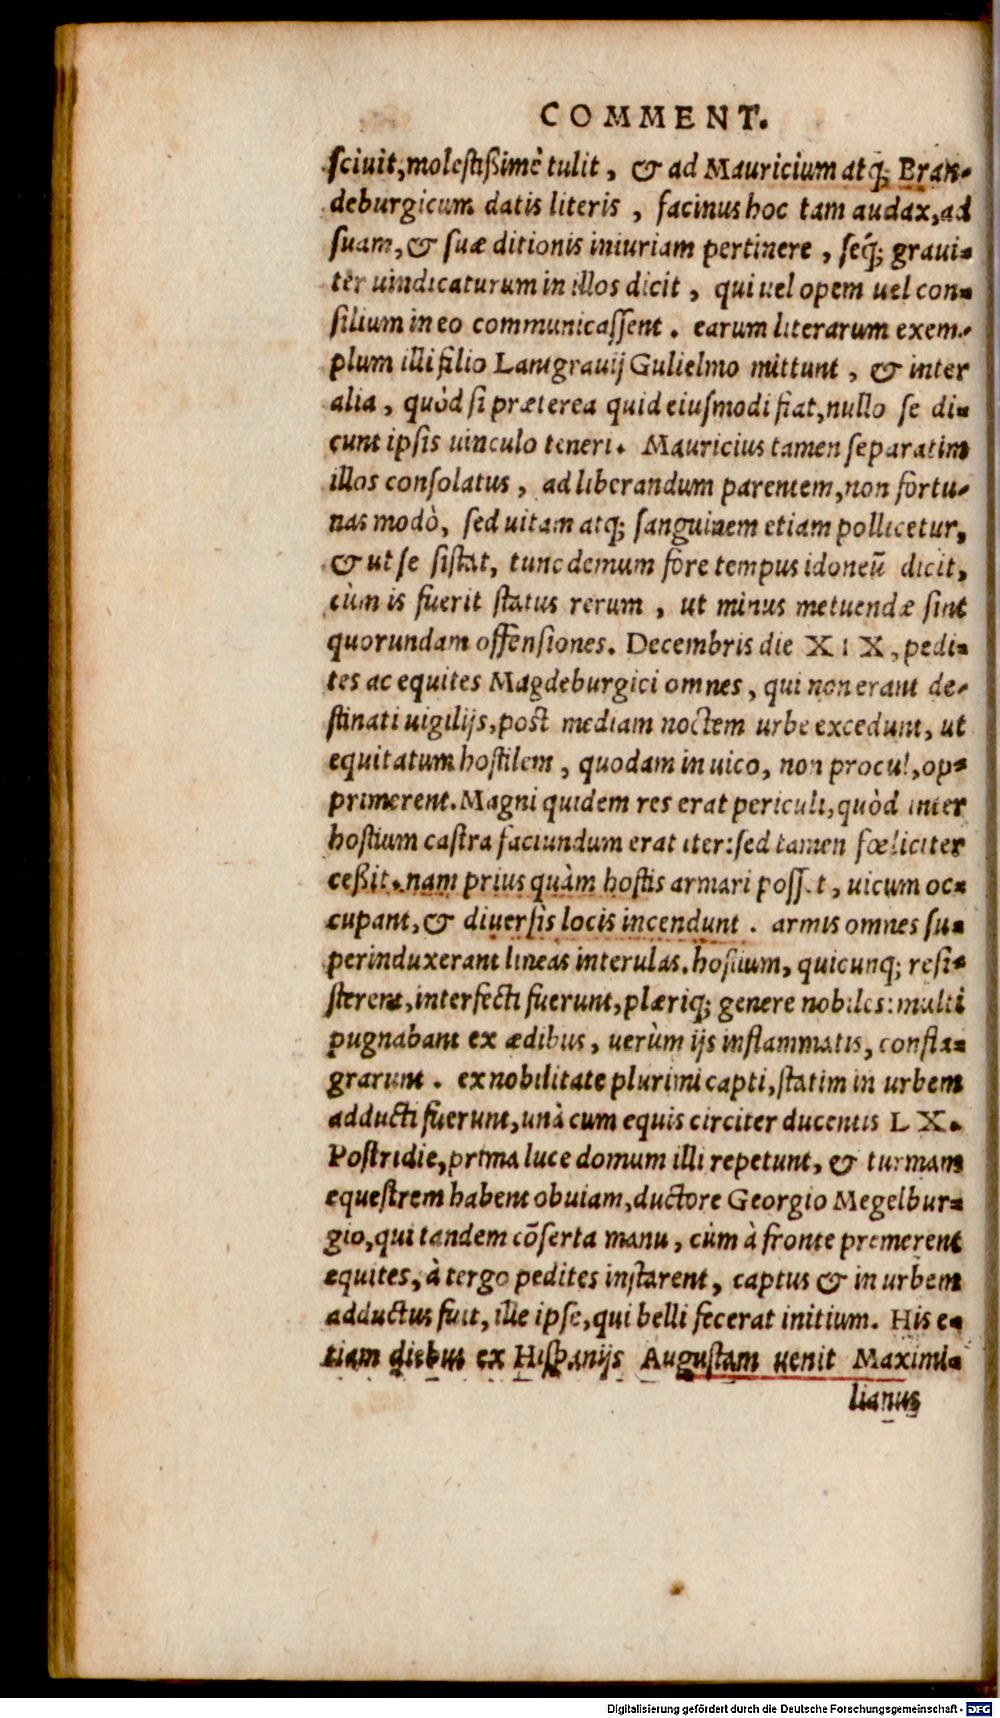 COMMENT.
sciuit, molestißimè tulit, & ad Mauricium atq; Bran-
deburgicum datis literis, facinus hoc tam audax, ad
suam, & suæ ditionis iniuriam pertinere, seq́; graui-
ter uindicaturum in illos dicit, qui uel opem uel con-
silium in eo communicassent. earum literarum exem-
plum illi filio Lantgrauij Gulielmo mittunt, & inter
alia, quòd si præterea quid eiusmodi fiat, nullo se di-
cunt ipsis uinculo teneri. Mauricius tamen separatim
illos consolatus, ad liberandum parentem, non fortu-
nas modò, sed uitam atq; sanguinem etiam pollicetur,
& ut se sistat, tunc demum fore tempus idoneū dicit,
cùm is fuerit status rerum, ut minus metuendæ sint
quorundam offensiones. Decembris die XIX, pedi-
tes ac equites Magdeburgici omnes, qui non erant de-
stinati uigilijs, post mediam noctem urbe excedunt, ut
equitatum hostilem, quodam in uico, non procul, op-
primerent. Magni quidem res erat periculi, quòd inter
hostium castra faciundum erat iter: sed tamen fœliciter
ceßit. nam prius quàm hostis armari posset, uicum oc-
cupant, & diuersis locis incendunt. armis omnes su-
perinduxerant lineas interulas. hostium, quicunq; resi-
sterent, interfecti fuerunt, plæriq; genere nobiles: multi
pugnabant ex ædibus, uerùm ijs inflammatis, confla-
grarunt. ex nobilitate plurimi capti, statim in urbem
adducti fuerunt, unà cum equis circiter ducentis LX.
Postridie, prima luce domum illi repetunt, & turmam
equestrem habent obuiam, ductore Georgio Megelbur-
gio, qui tandem cōserta manu, cùm à fronte premerent
equites, à tergo pedites instarent, captus & in urbem
adductus fuit, ille ipse, qui belli fecerat initium. His e-
tiam diebus ex Hispanijs Augustam uenit Maximi-
lianus
Digitalisierung gefördert durch die Deutsche Forschungsgemeinschaft - DFG